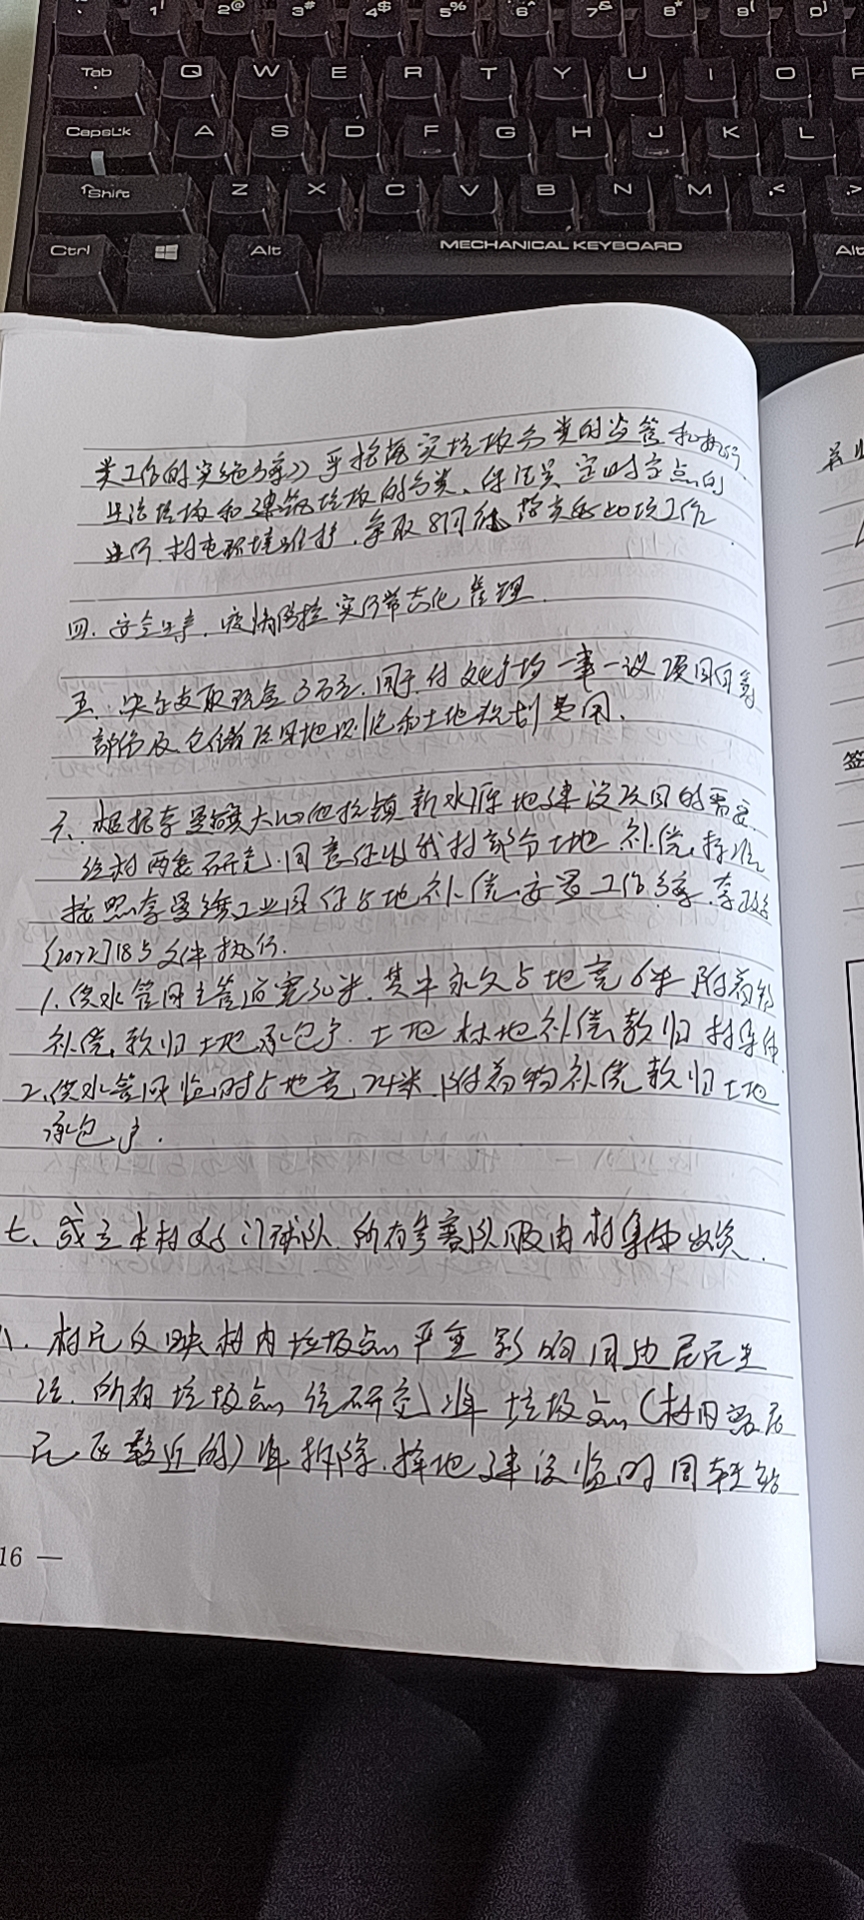 1! 2@ 3# 4$ 5% 6^ 7& 8* 9( 0)
Tab Q W E R T Y U I O P
CapsLk A S D F G H J K L
↑Shift Z X C V B N M ,< .>
Ctrl Alt MECHANICAL KEYBOARD Alt
类工作的实施方案》严格落实垃圾分类的监管和执行
生活垃圾和建筑垃圾的分类、保洁员定时定点的
进行村屯环境维护,争取8月份
四.安全生产,疫情防控实行常态化管理.
五.决定支取现金3万元.用于付文化广场一事一议项目自筹
部分及仓储区用地和土地规划费用.
六.根据李曼镇新水源地建设项目的需要.
经村两委研究,同意征收我村部分土地补偿,标准
按照李曼镇工业园征占地补偿安置工作方案.李政发
[2022]18号文件执行.
1.供水管网主管道宽30米.其中永久占地宽6米附着物
补偿款归土地承包户.土地林地补偿款归村集体
2.供水管网临时占地宽24米.附着物补偿款归土地
承包户.
七、成立本村门球队.所有参赛队服由村集体出资.
八.村民反映村内垃圾点严重影响周边居民生
活.所有垃圾点经研究,将垃圾点(村内离居
民区较近的)集拆除.择地建设临时周转站
16 —
签